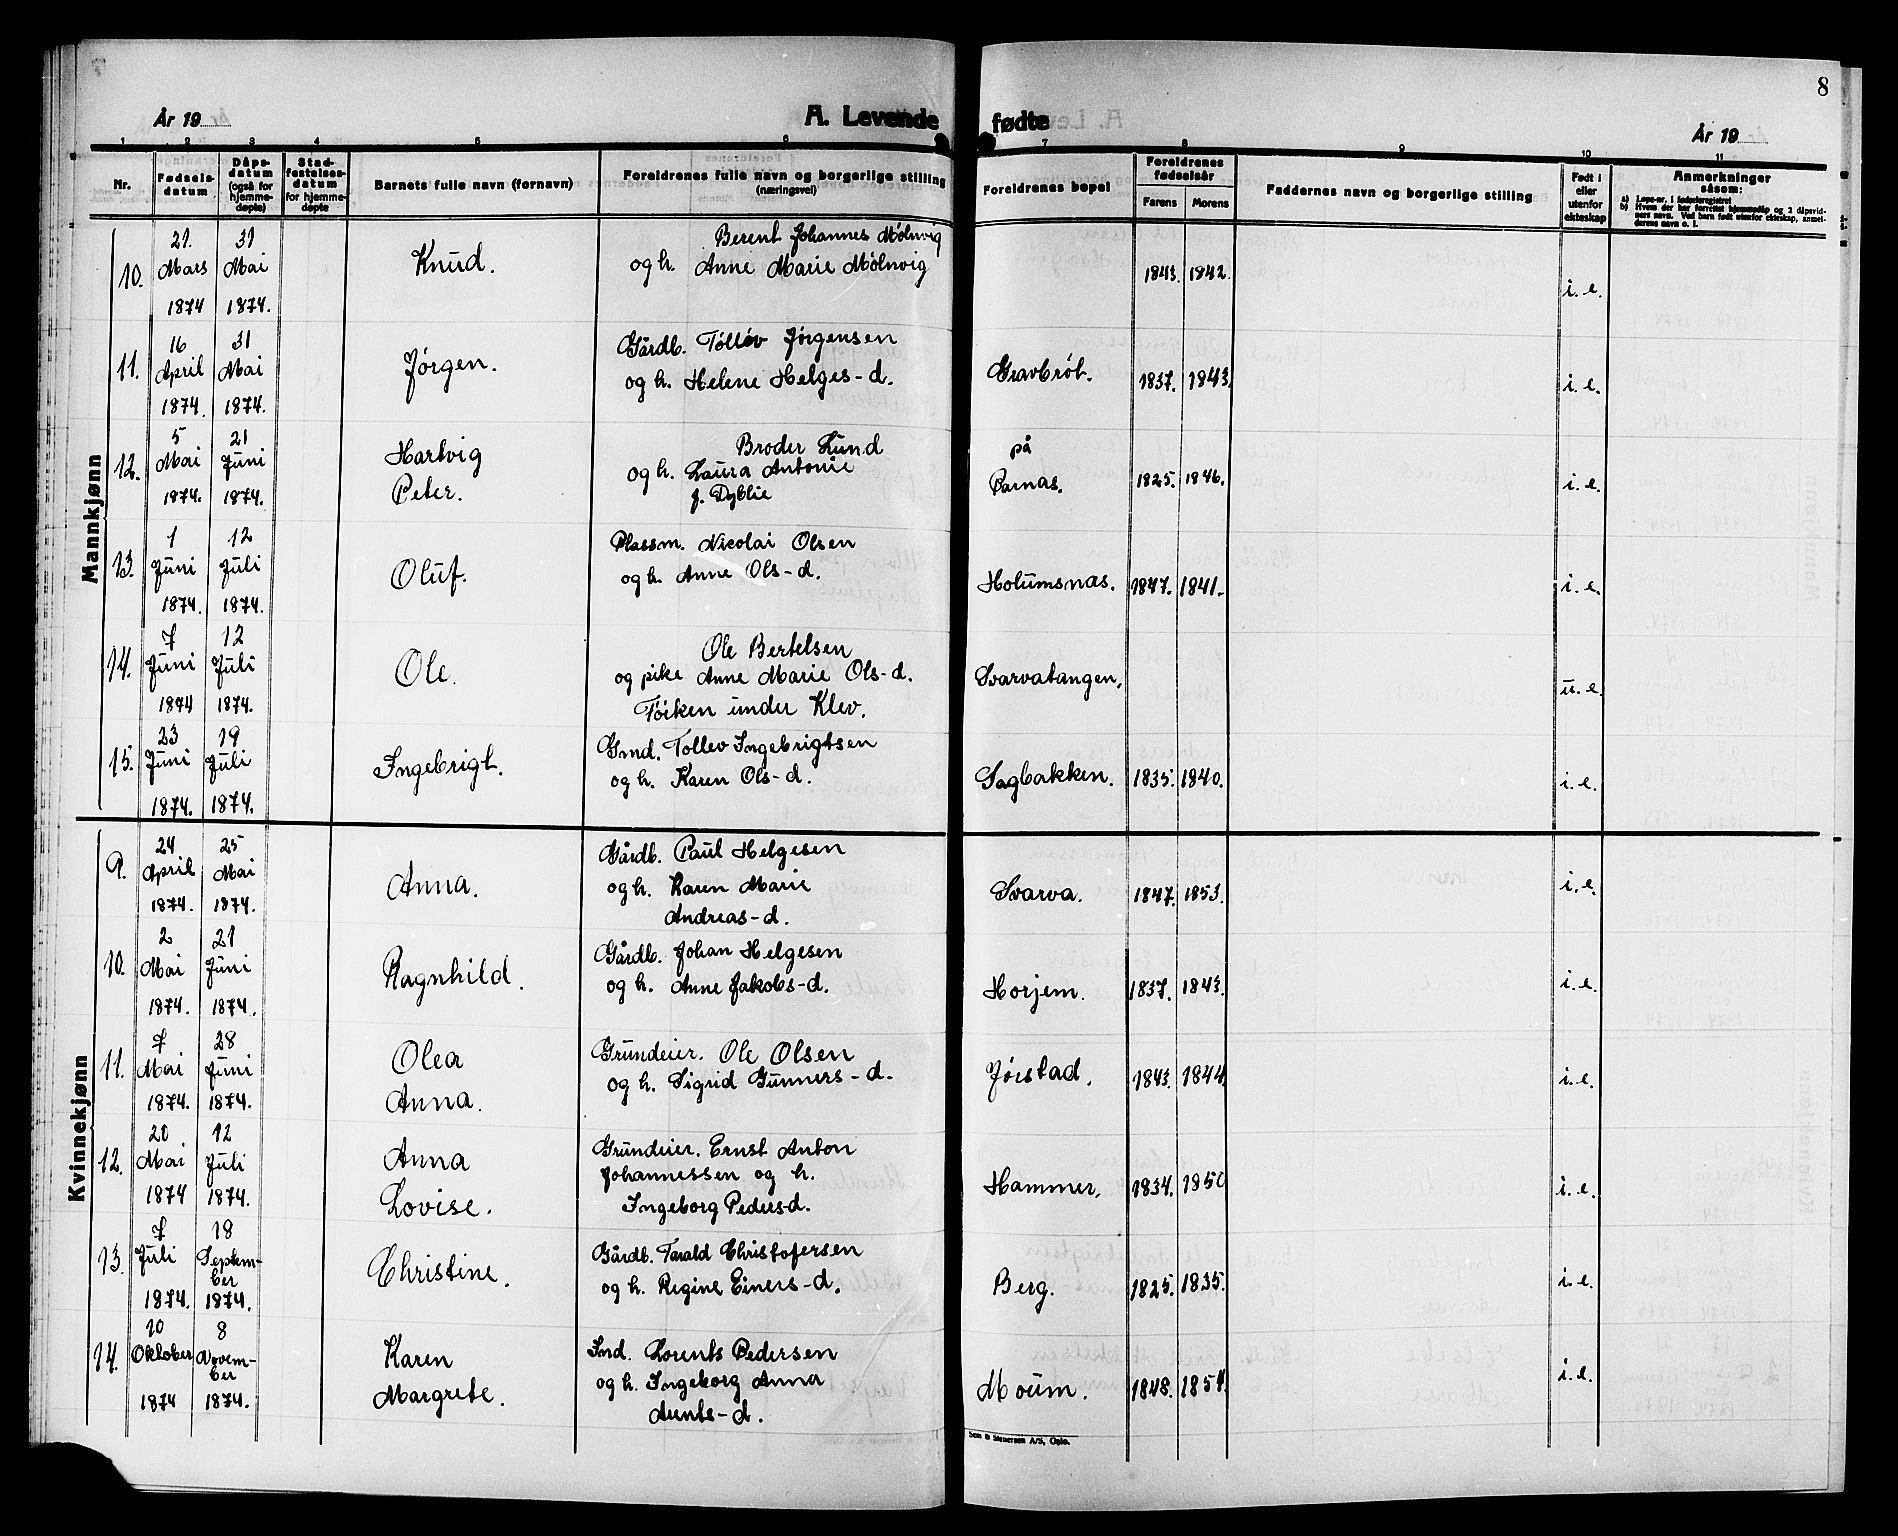 8
År 19
A. Levende fødte
År 19
1 2 3 4 5 6 7 8 9 10 11
Nr. | Fødsels-datum | Dåps-datum (også for hjemme-døpte) | Stad-festelses-datum for hjemme-døpte | Barnets fulle navn (fornavn) | Foreldrenes fulle navn og borgerlige stilling (næringsvei) | Foreldrenes bopel | Foreldrenes fødselsår Farens Morens | Faddernes navn og borgerlige stilling | Født i eller utenfor ekteskap | Anmerkninger såsom: a) Løpe-nr. i fødselsregistret b) Hvem der har forrettet hjemmedåp og 2 dåpsvidners navn. Ved barn født utenfor ekteskap, anmelderens navn o. l.
Mannkjønn
10. | 21. Mars 1874 | 31 Mai 1874. | Knud. | Berent Johannes Mölnvig og h. Anne Marie Mölnvig | 1843. | 1842. | i. e.
11. | 16 April 1874. | 31 Mai 1874. | Jörgen. | Gårdb. Tölløv Jörgensen og h. Helene Helges-d. | Gravbröt. | 1837. | 1843. | i. e.
12. | 5 Mai 1874. | 21 Juni 1874. | Hartvig Peter. | Broder Lund og h. Laura Antonie f. Dyblie | på Parnas. | 1825. | 1846. | i. e.
13. | 1 Juni 1874. | 12 Juli 1874. | Oluf. | Plassm. Nicolai Olsen og h. Anne Ols-d. | Holumsnas. | 1847. | 1841. | i. e.
14. | 7 Juni 1874 | 12 Juli 1874. | Ole. | Ole Bertelsen og pike Anne Marie Ols-d. Töiken under Klev. | Svarvatangen. | u. e.
15. | 23 Juni 1874. | 19 Juli 1874. | Ingebrigt. | Gmd. Tollev Ingebrigtsen og h. Karen Ols-d. | Sagbakken. | 1835. | 1840. | i. e.
Kvinnekjønn
9. | 24 April 1874. | 25 Mai 1874. | Anna. | Gårdb. Paul Helgesen og h. Karen Marie Andreas-d. | Svarva. | 1847. | 1853. | i. e.
10. | 2 Mai 1874. | 21 Juni 1874. | Ragnhild. | Gårdb. Johan Helgesen og h. Anne Jakobs-d. | Horjem. | 1837. | 1843. | i. e.
11. | 7 Mai 1874. | 28 Juni 1874. | Olea Anna. | Grundeier. Ole Olsen og h. Sigrid Gunners-d. | Jörstad. | 1843. | 1844. | i. e.
12. | 20 Mai 1874 | 12 Juli 1874. | Anna Lovise. | Grundeier. Ernst Anton Johannessen og h. Ingeborg Peders-d. | Hammer. | 1834. | 1850 | i. e.
13. | 7 Juli 1874. | 18 September 1874. | Christine. | Gårdb. Tarald Christofersen og h. Regine Einers-d. | Berg. | 1825. | 1835. | i. e.
14. | 10 Oktober 1874 | 8 November 1874. | Karen Margrete. | Ind. Lorents Pedersen og h. Ingeborg Anna Arnts-d. | Moum. | 1848. | 1851. | i. e.
Sem & Stenersen A/S, Oslo.